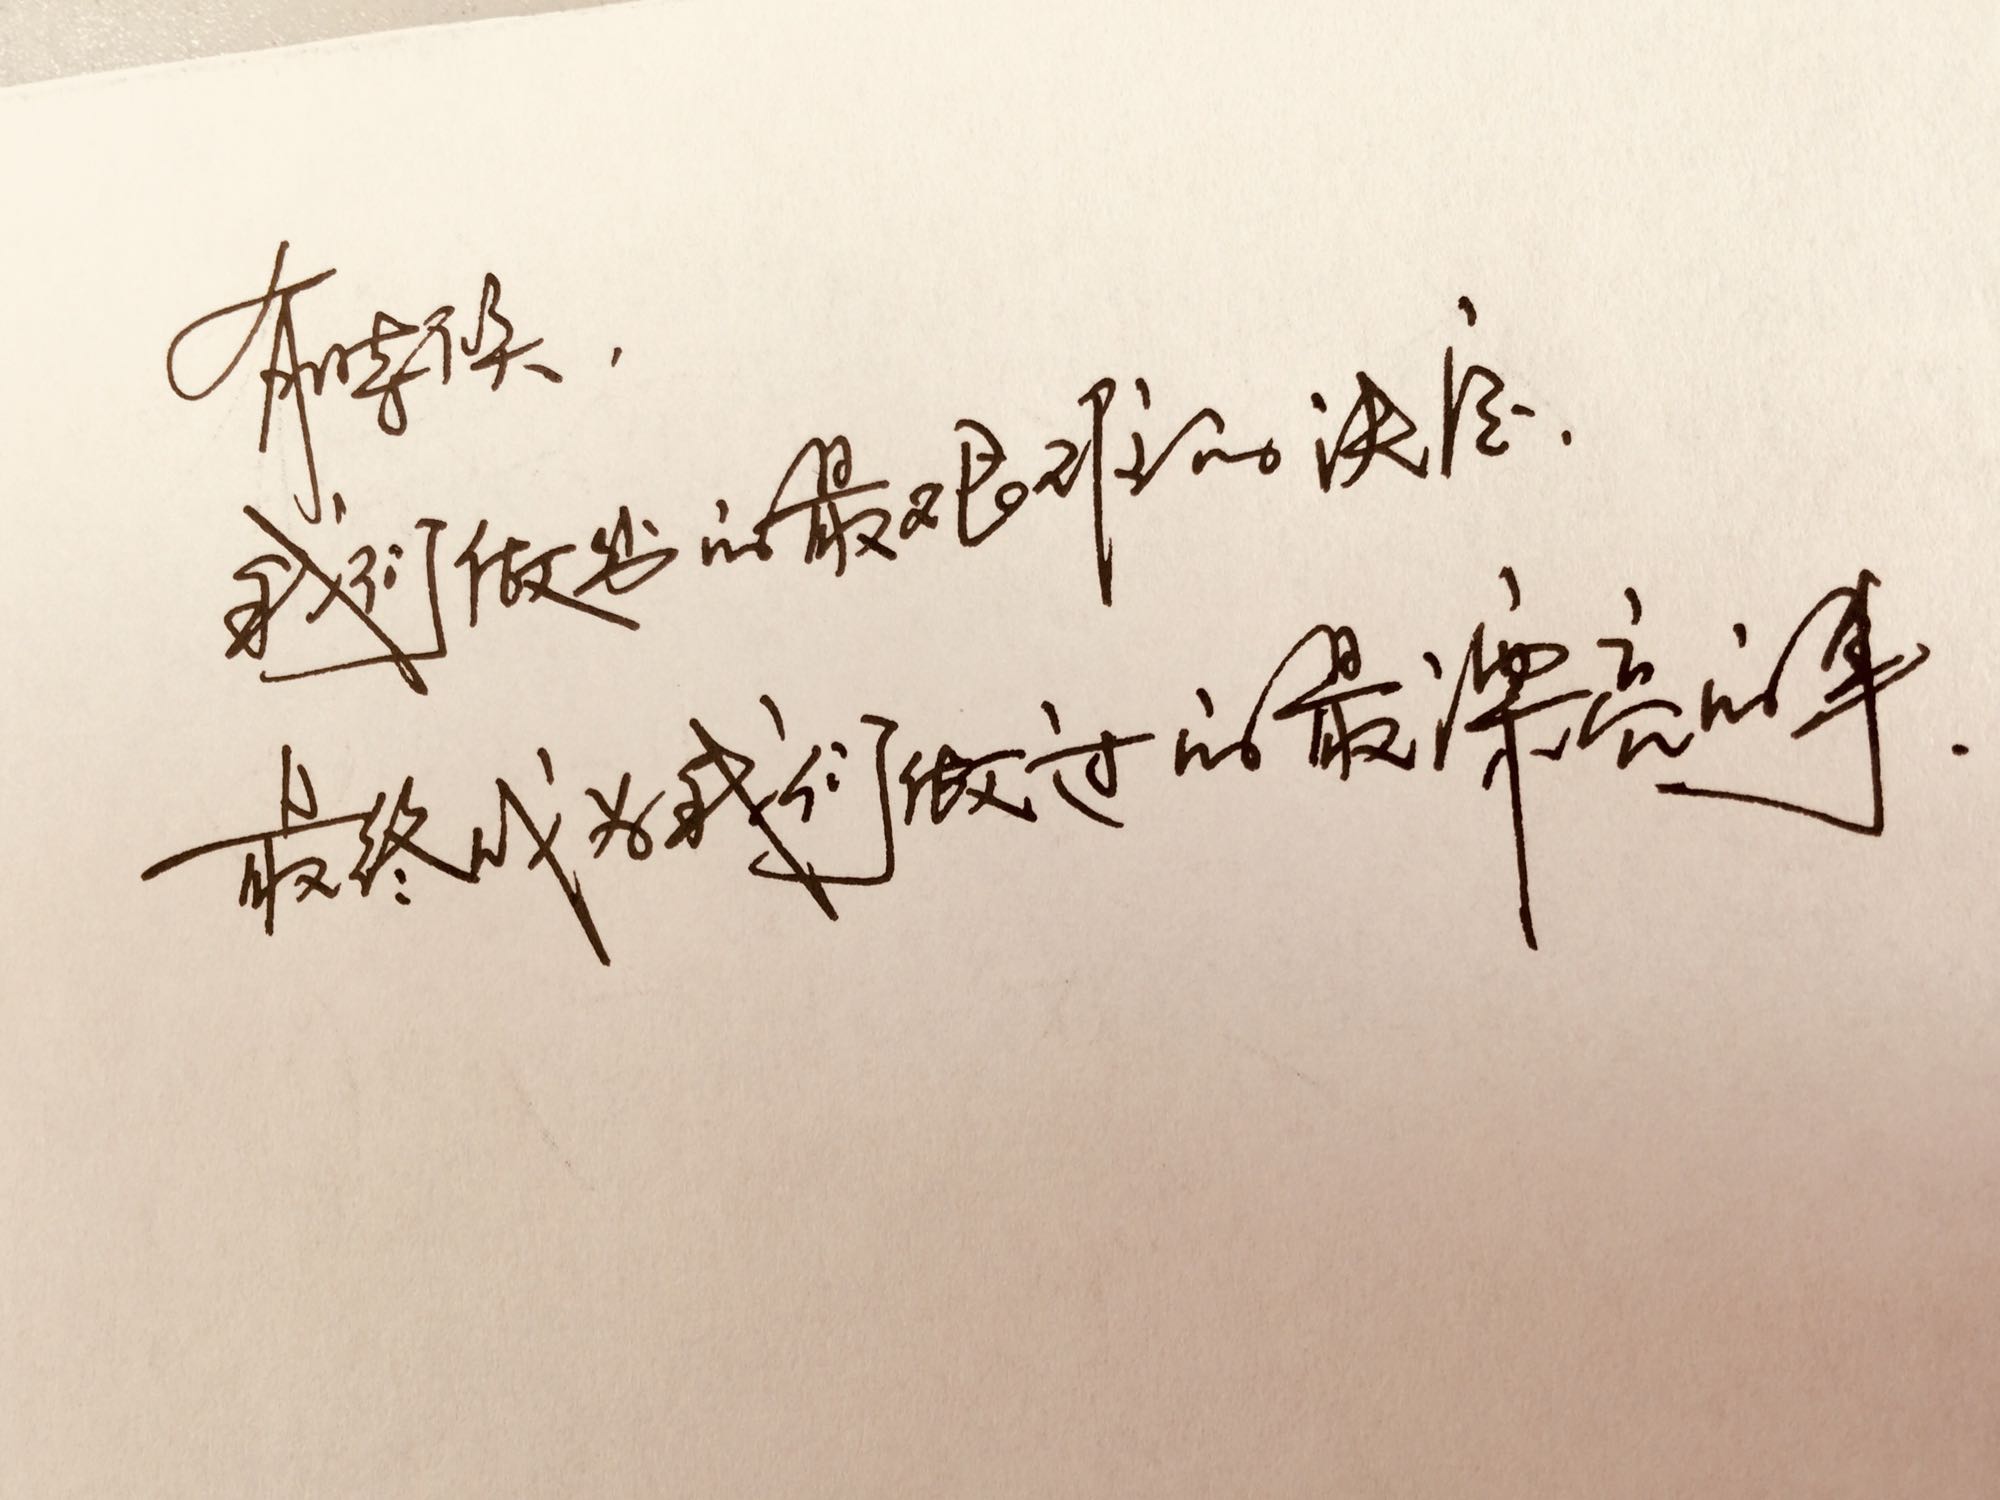 有时候,
我们做出的最艰难的决定.
最终成为我们做过的最漂亮的事.